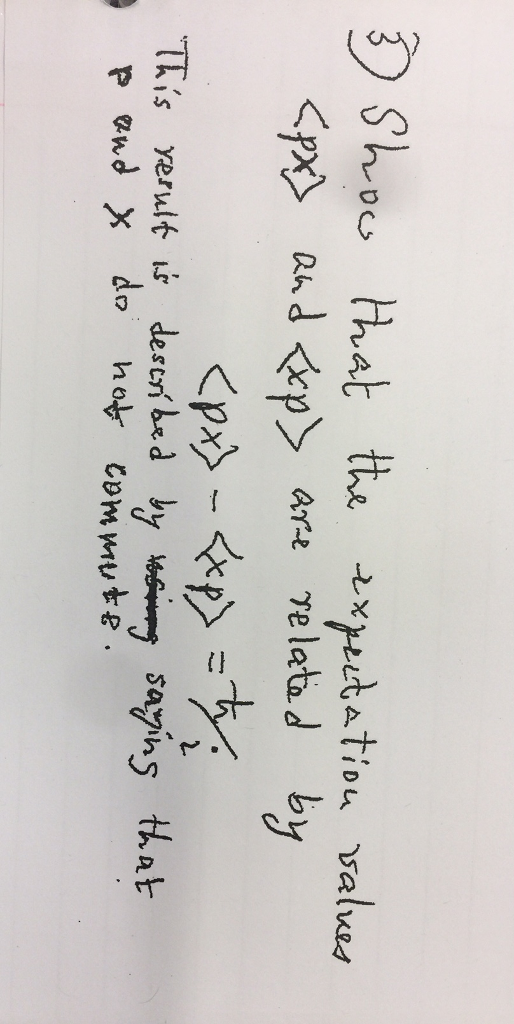 3) Show that the expectation values
<px> and <xp> are related by
<px> - <xp> = ħ/i
This result is described by saying that
p and x do not commute.